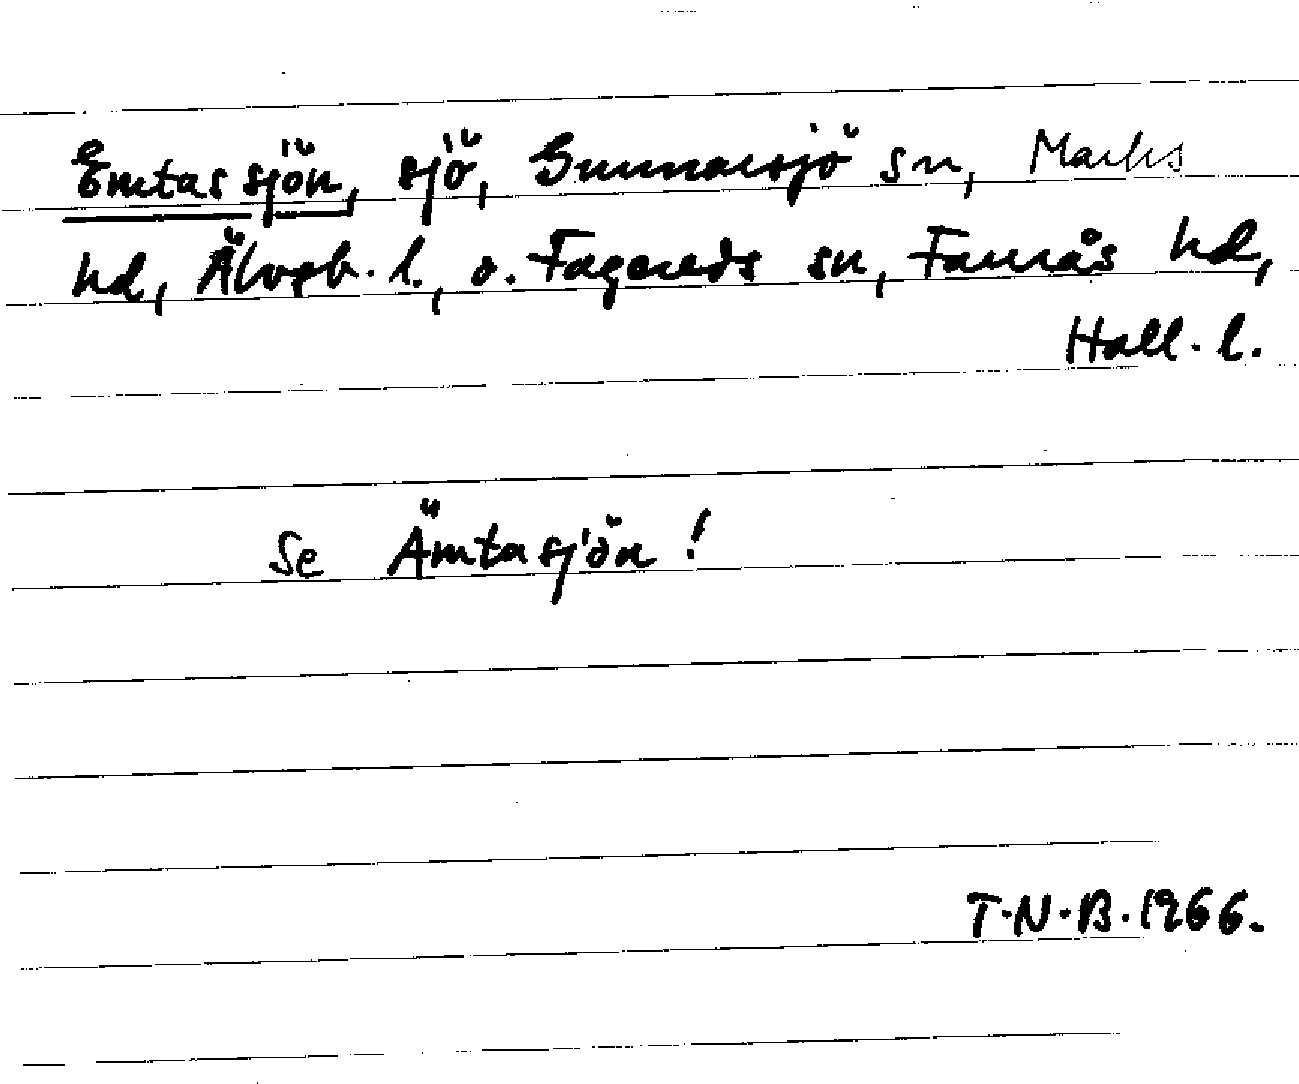 Emtassjön, sjö, Gunnarsjö sn, Marks
hd, Älvsb. l., o. Fagereds sn, Faurås hd,
Hall. l.
Se Ämtasjön!
T.N.B. 1966.